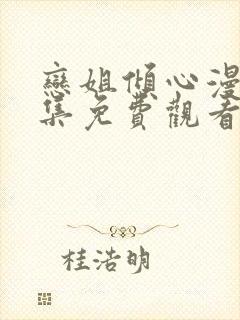 戀姐傾心漫
集免費觀看
桂浩明